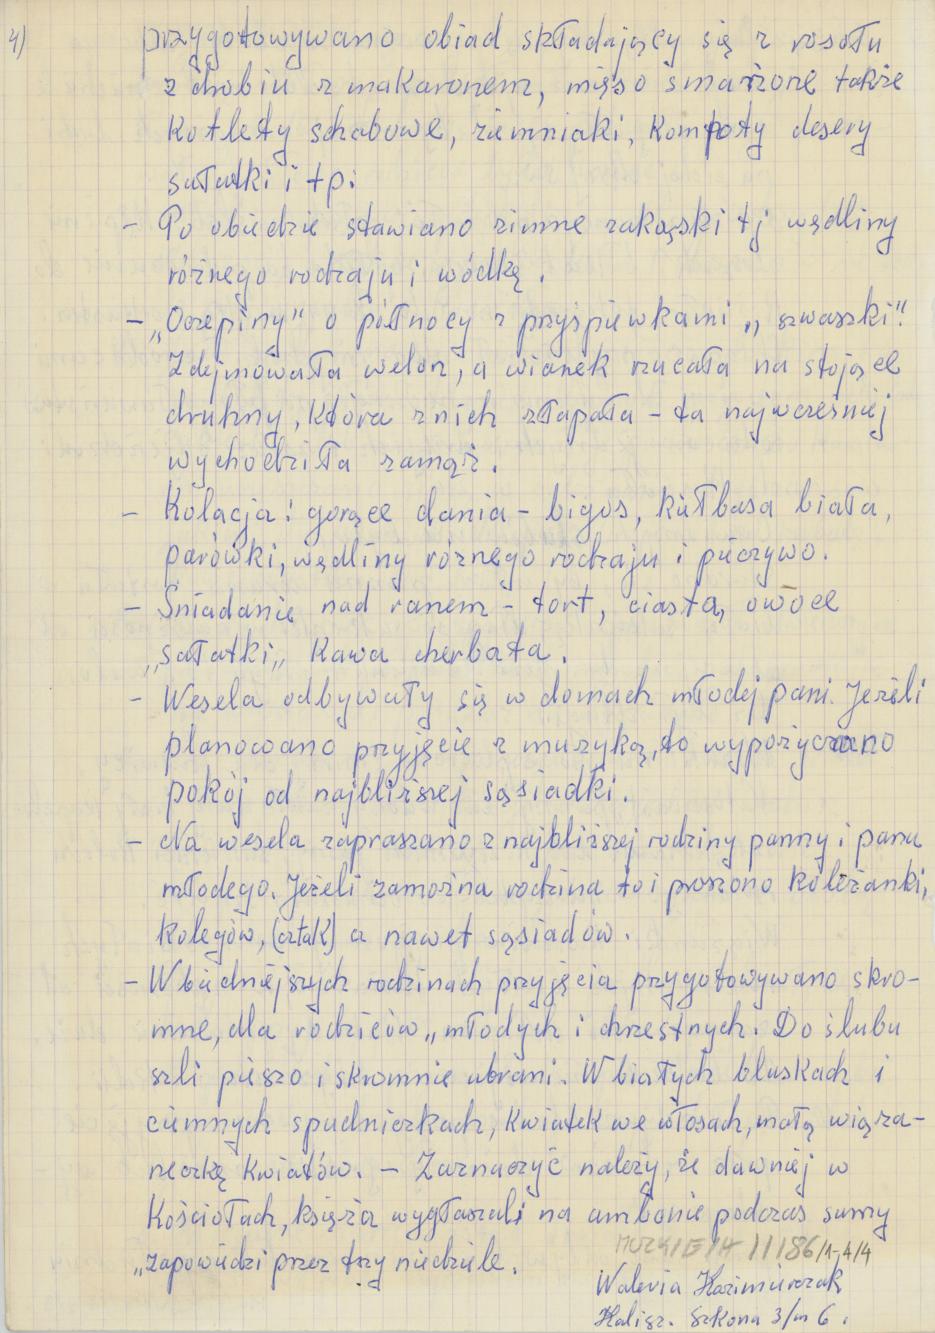 4)
przygotowywano obiad składający się z rosołu
z drobiu z makaronem, mięso smażone także
Kotlety schabowe, ziemniaki, Kompoty desery
sałatki i tp:
- Po obiedzie stawiano zimne zakąski tj wędliny
różnego rodzaju i wódkę.
- „Oczepiny" o północy z przyśpiewkami „ szwaszki".
Zdejmowała welon, a wianek rzucała na stojące
druhny, Która z nich złapała - ta najwcześniej
wychodziła zamąż.
- Kolacja: gorące dania - bigos, kiełbasa biała,
parówki, wędliny różnego rodzaju i pieczywo.
- Śniadanie nad ranem - tort, ciasta, owoce
„sałatki„ Kawa cherbata.
- Wesela odbywały się w domach młodej pani. Jeżeli
planowano przyjęcie z muzyką, to wypożyczano
pokój od najbliższej sąsiadki.
- Na wesela zapraszano z najbliższej rodziny panny i pana
młodego. Jeżeli zamożna rodzina to i proszono Koleżanki,
kolegów, a nawet sąsiadów.
- W biedniejszych rodzinach przyjęcia przygotowywano skro-
mne, dla rodziców „młodych i chrzestnych. Do ślubu
szli pieszo i skromnie ubrani. W białych bluskach i
ciemnych spudniczkach, Kwiatek we włosach, małą wiąza-
neczkę Kwiatów. - Zaznaczyć należy, że dawniej w
Kościołach, księża wygłaszali na ambonie podczas sumy
„zapowiedzi przez trzy niedziele.
MOZK/E/A/II/86/1-4/4
Waleria Kazimierczak
Kalisz. Szkona 3/m 6.